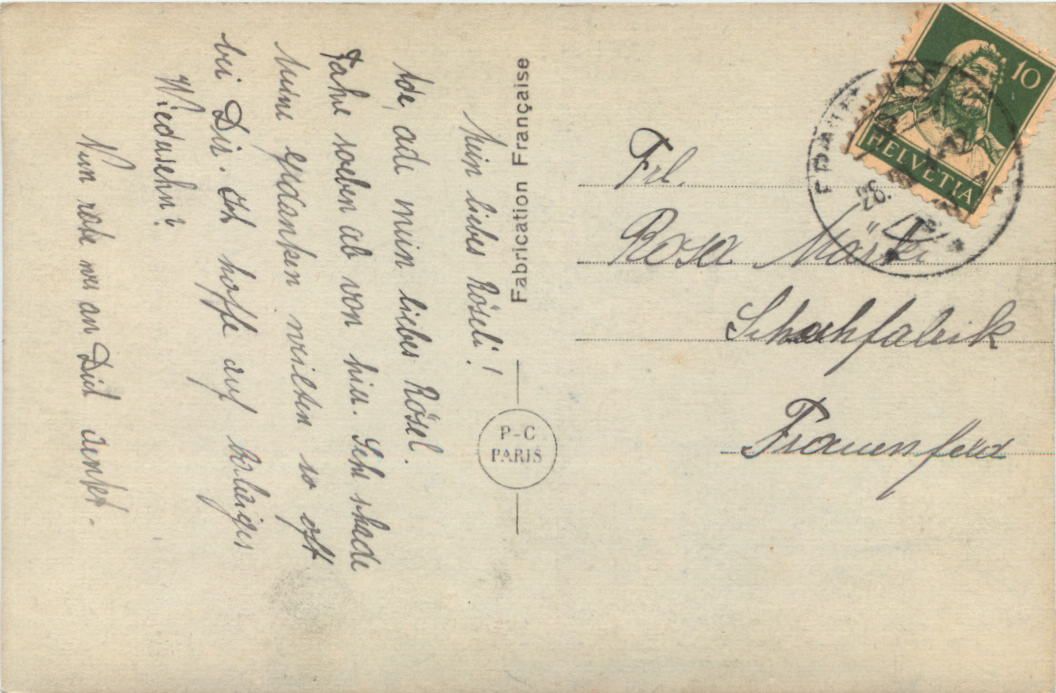 Mein liebes Röseli!
Ade, ade mein liebes Rösel.
Fahre soeben ab von hier. Sehr schade
Meine gedanken weilten so oft
bei Dir. Ich hoffe auf baldiges
Wiedersehn?
Nun an Dich denkt.
Fabrication Française
P-C
PARIS
Frl.
Rosa
Schuhfabrik
Frauenfeld
10
HELVETIA